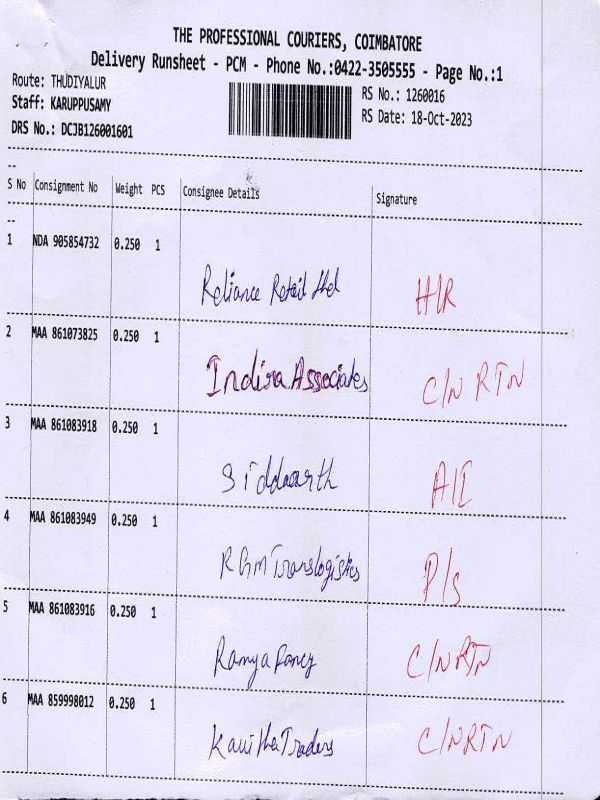 THE PROFESSIONAL COURIERS, COIMBATORE
Delivery Runsheet - PCM - Phone No.:0422-3505555 - Page No.:1
Route: THUDIYALUR
Staff: KARUPPUSAMY
DRS No.: DCJB126001601
RS No.: 1260016
RS Date: 18-Oct-2023
S No Consignment No Weight PCS Consignee Details Signature
1 NDA 905854732 0.250 1
Reliance Retail ltd H/R
2 MAA 861073825 0.250 1
Indira Associates C/N RTN
3 MAA 861083918 0.250 1
Siddaarth A/I
4 MAA 861083949 0.250 1
RGM Translogistics P/s
5 MAA 861083916 0.250 1
Ramya fancy C/NRTN
6 MAA 859998012 0.250 1
Kavitha Traders C/NRTN